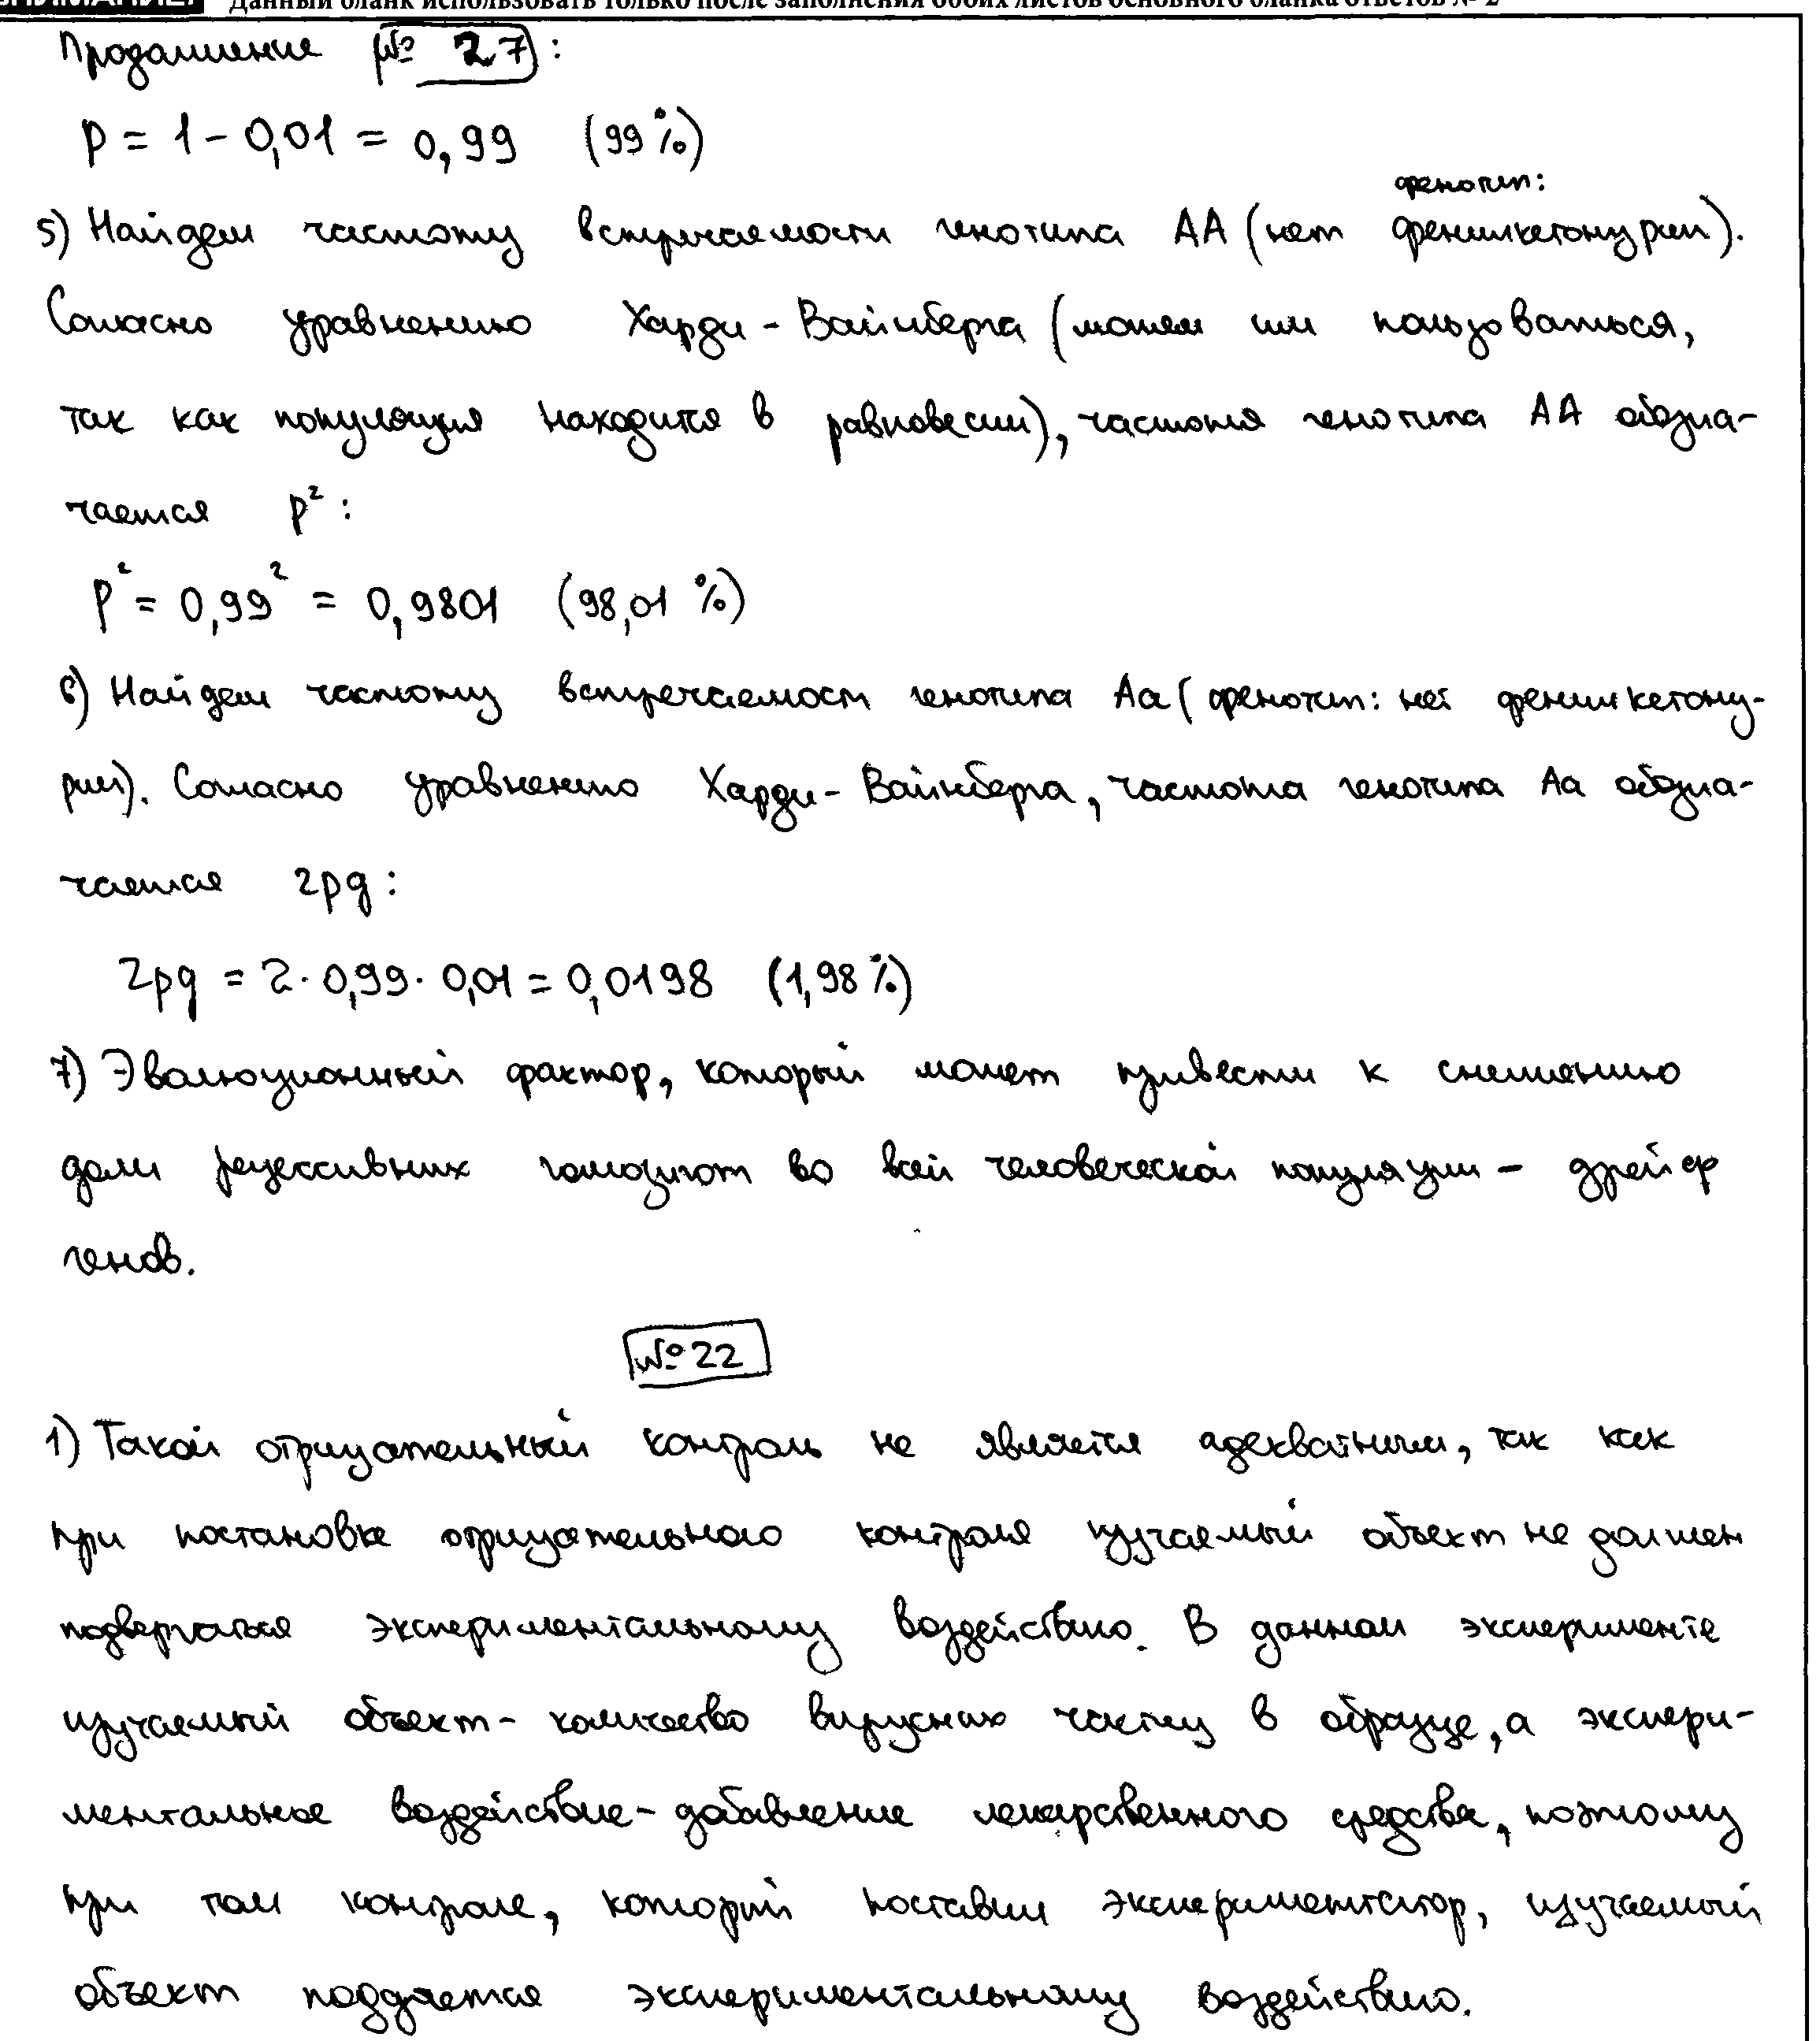 Данный бланк использовать только после заполнения обоих листов основного бланка ответов № 2
Продолжение №27:
p = 1 - 0,01 = 0,99 (99%)
фенотип:
5) Найдем частоту встречаемости генотипа АА (нет фенилкетонурии).
Согласно уравнению Харди-Вайнберга (можем им пользоваться,
так как популяция находится в равновесии), частота генотипа АА обозна-
чается p²:
p² = 0,99² = 0,9801 (98,01 %)
6) Найдем частоту встречаемост генотипа Аа (фенотип: нет фенилкетону-
рии). Согласно уравнению Харди-Вайнберга, частота генотипа Аа обозна-
чается 2pq:
2pq = 2 · 0,99 · 0,01 = 0,0198 (1,98%)
7) Эволюционный фактор, который может привести к снижению
доли рецессивных гомозигот во всей человеческой популяции - дрейф
генов.
№22
1) Такой отрицательный контроль не является адекватным, так как
при постановке отрицательного контроля изучаемый объект не должен
подвергаться экспериментальному воздействию. В данном эксперименте
изучаемый объект - количество вирусных частиц в образце, а экспери-
ментальное воздействие - добавление лекарственного средства, поэтому
при том контроле, который поставил экспериментатор, изучаемый
объект поддается экспериментальному воздействию.